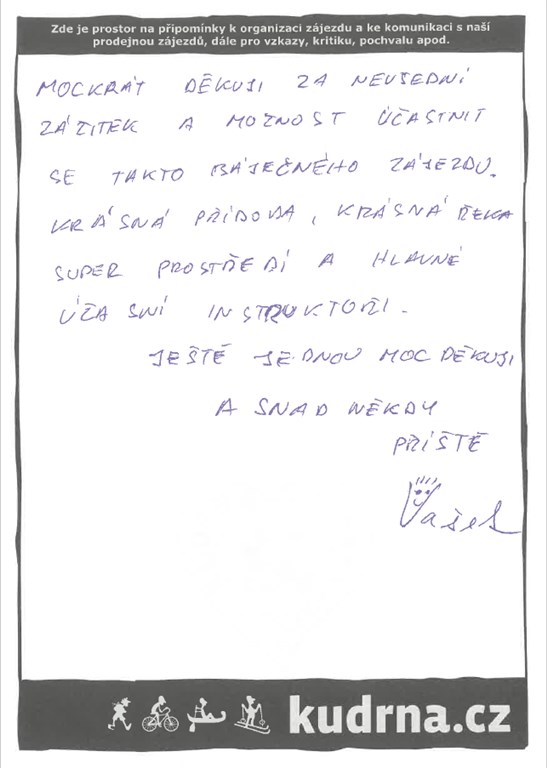 Zde je prostor na připomínky k organizaci zájezdu a ke komunikaci s naší
prodejnou zájezdů, dále pro vzkazy, kritiku, pochvalu apod.
MOCKRÁT DĚKUJI ZA NEVŠEDNÍ
ZÁŽITEK A MOŽNOST ÚČASTNIT
SE TAKTO BÁJEČNÉHO ZÁJEZDU.
KRÁSNÁ PŘÍRODA, KRÁSNÁ ŘEKA
SUPER PROSTŘEDÍ A HLAVNĚ
ÚŽASNÍ INSTRUKTOŘI.
JEŠTĚ JEDNOU MOC DĚKUJI
A SNAD NĚKDY
PŘÍŠTĚ
Vašek
kudrna.cz